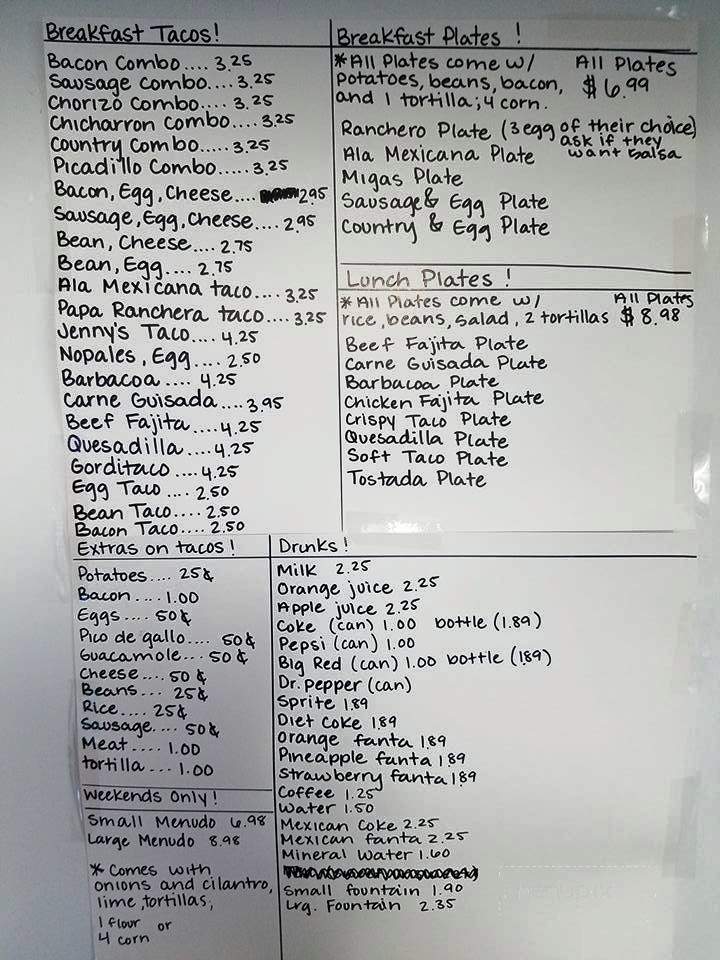 Breakfast Tacos!
Bacon Combo.... 3.25
Sausage Combo.... 3.25
Chorizo Combo.... 3.25
Chicharron Combo.... 3.25
Country Combo..... 3.25
Picadillo Combo..... 3.25
Bacon, Egg, Cheese.... 2.95
Sausage, Egg, Cheese.... 2.95
Bean, Cheese.... 2.75
Bean, Egg.... 2.75
Ala Mexicana taco.... 3.25
Papa Ranchera taco.... 3.25
Jenny's Taco.... 4.25
Nopales, Egg.... 2.50
Barbacoa.... 4.25
Carne Guisada.... 3.95
Beef Fajita.... 4.25
Quesadilla.... 4.25
Gorditaco.... 4.25
Egg Taco.... 2.50
Bean Taco.... 2.50
Bacon Taco.... 2.50
Breakfast Plates!
*All Plates come w/
potatoes, beans, bacon,
and 1 tortilla; 4 corn.
All Plates
$6.99
Ranchero Plate (3 egg of their choice)
ask if they
want salsa
Ala Mexicana Plate
Migas Plate
Sausage & Egg Plate
Country & Egg Plate
Lunch Plates!
*All Plates come w/
rice, beans, salad, 2 tortillas
All Plates
$8.98
Beef Fajita Plate
Carne Guisada Plate
Barbacoa Plate
Chicken Fajita Plate
Crispy Taco Plate
Quesadilla Plate
Soft Taco Plate
Tostada Plate
Extras on tacos!
Potatoes.... 25¢
Bacon.... 1.00
Eggs.... 50¢
Pico de gallo.... 50¢
Guacamole... 50¢
Cheese.... 50¢
Beans... 25¢
Rice.... 25¢
Sausage.... 50¢
Meat.... 1.00
tortilla... 1.00
Weekends Only!
Small Menudo 6.98
Large Menudo 8.98
*Comes with
onions and cilantro,
lime, tortillas,
1 flour or
4 corn
Drunks!
Milk 2.25
Orange juice 2.25
Apple juice 2.25
Coke (can) 1.00 bottle (1.89)
Pepsi (can) 1.00
Big Red (can) 1.00 bottle (1.89)
Dr. Pepper (can)
Sprite 1.89
Diet Coke 1.89
Orange fanta 1.89
Pineapple fanta 1.89
Strawberry fanta 1.89
Coffee 1.25
Water 1.50
Mexican Coke 2.25
Mexican fanta 2.25
Mineral Water 1.60
Small fountain 1.90
Lrg. Fountain 2.35